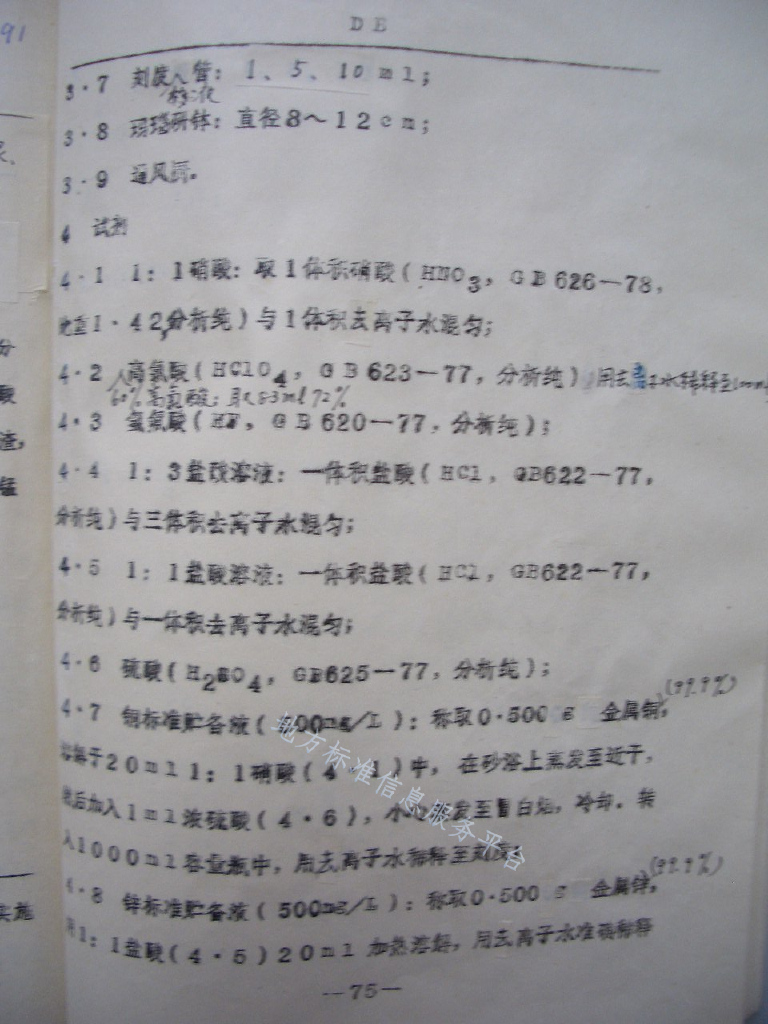 91
DB
3·7 刻度移液管：1、5、10ml；
3·8 玛瑙研钵：直径8～12cm；
3·9 通风橱。
4 试剂
4·1 1：1硝酸：取1体积硝酸(HNO3，GB626—78，
比重1·42,分析纯)与1体积去离子水混匀；
4·2 高氯酸(HClO4，GB623—77，分析纯)用去离子水稀释至100ml
60%高氯酸：取83ml72%
4·3 氢氟酸(HF，GB620—77，分析纯)；
4·4 1：3盐酸溶液：一体积盐酸(HCl，GB622—77，
分析纯)与三体积去离子水混匀；
4·5 1：1盐酸溶液：一体积盐酸(HCl，GB622—77，
分析纯)与一体积去离子水混匀；
4·6 硫酸(H2SO4，GB625—77，分析纯)；
4·7 铜标准贮备液(500mg/L)：称取0·500g 金属铜(99.9%)，
溶解于20ml1：1硝酸(4·1)中，在砂浴上蒸发至近干，
然后加入1ml浓硫酸(4·6)，蒸发至冒白烟，冷却。转
入1000ml容量瓶中，用去离子水稀释至刻度；
4·8 锌标准贮备液(500mg/L)：称取0·500g 金属锌(99.9%)，
用1：1盐酸(4·5)20ml加热溶解，用去离子水准确稀释
—75—
地方标准信息服务平台
分
酸
渣，
锰
实施